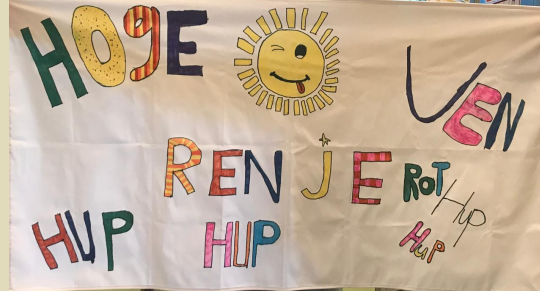 HOgE VEN
RENjE ROT
HUP HUP Hup
HuP